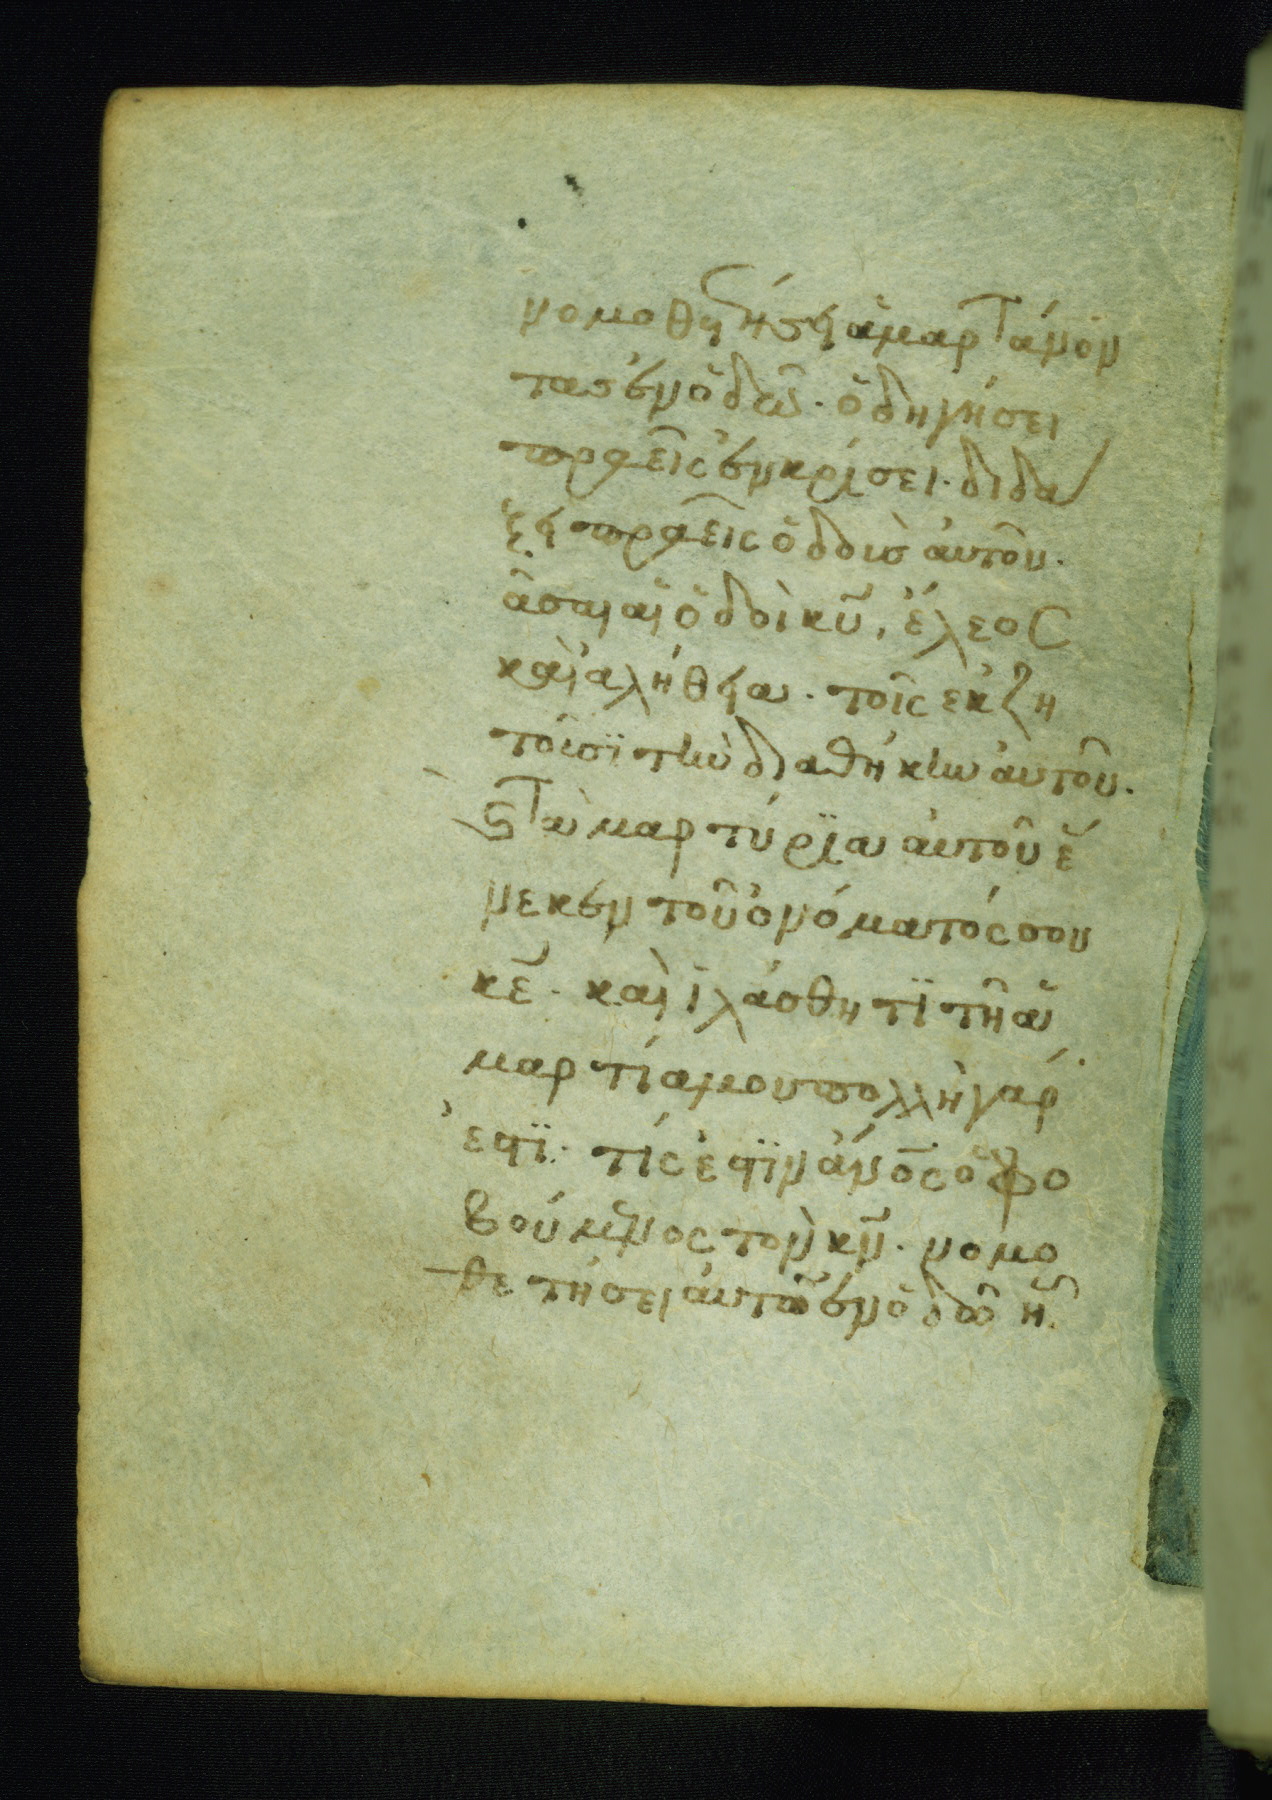 νομοθετήσει ἁμαρτάνον
τας ἐν ὁδῶ· ὁδηγήσει
πραεῖς ἐν κρίσει· διδά
ξει πραεῖς ὁδοὺς αὐτοῦ·
ᾶσαι αἱ ὁδοὶ κῦ, ἔλεος
καὶ ἀλήθεια· τοῖς ἐκζη
τοῦσϊ τὴν διαθήκην αὐτοῦ·
ϛ Τὰ μαρτύρϊα αὐτοῦ ἕ
νεκεν τοῦ ὀνόματός σου
κε̄· καὶ ἱλάσθητϊ τῆ ἁ
μαρτία μου πολλὴ γάρ
ἐστϊ· τίς ἐστϊν ἄνο̄ς ὁ φο
βούμενος τὸν κν̄· νομο
θετήσει αὐτῶ ἐν ὁδῶ ἧ